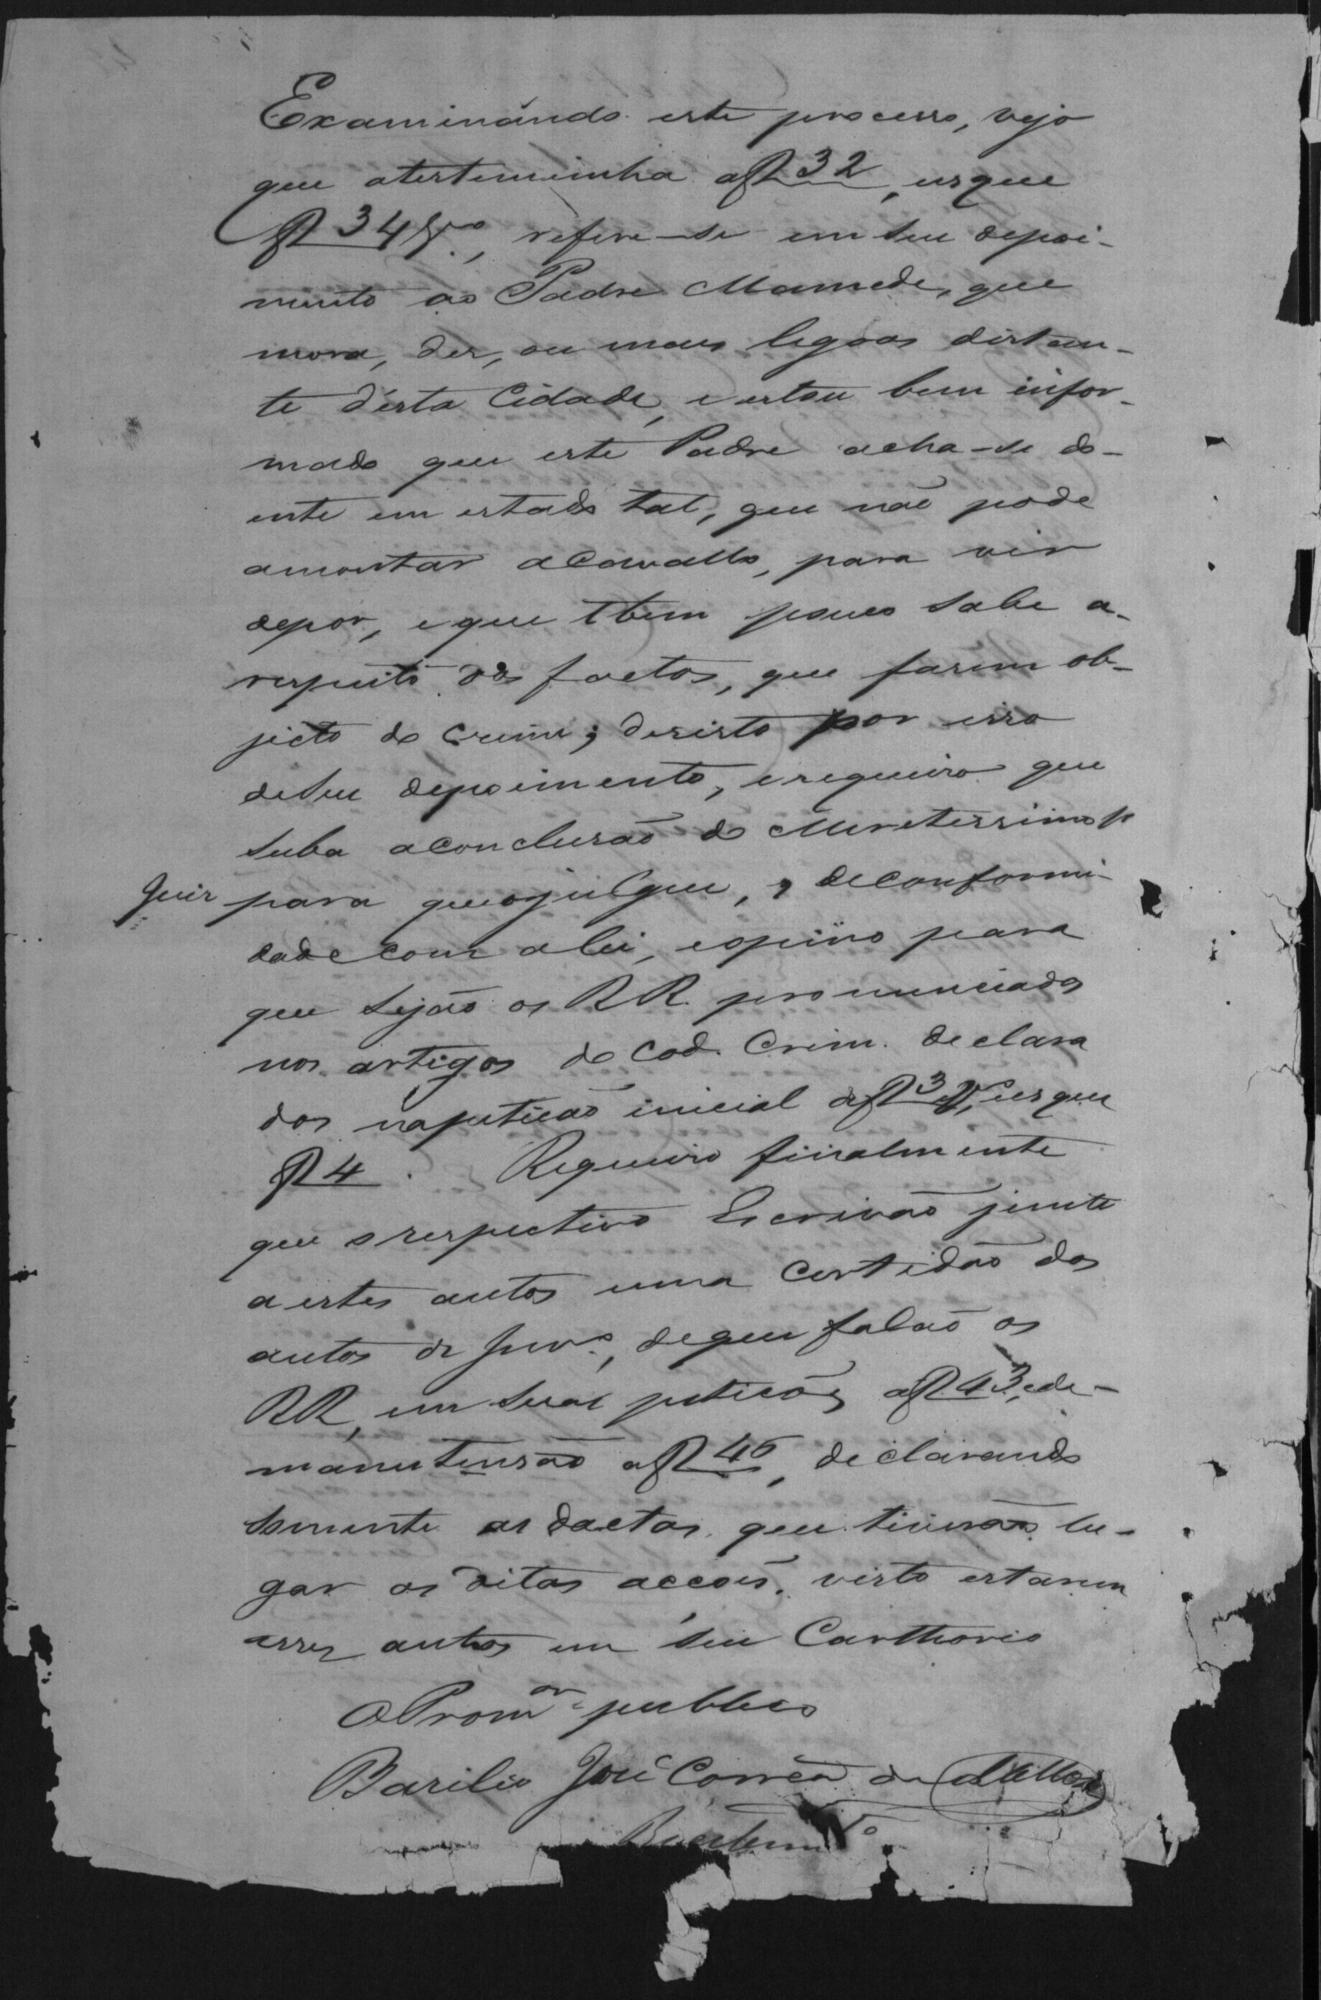 Examinando este processo, vejo
que atestemunha af 32, usque
f 34 vº, refere-se em seu depoi-
mento ao Padre Mamede, que
mora, des, ou mais legoas distan-
te desta Cidade, e estou bem infor-
mado que este Padre acha-se do-
ente em estado tal, que não pode
amontar acavallo, para vir
depor, e que tbem pouco sabe a-
respeito dos factos, que fazem ob-
jecto do crime; desisto por isso
deseu depoimento, e requeiro que
suba aconclusão do Meretissimo
Juis para que ojulgue, deconformi-
dade com alei, e opino para
que sejão os RR. pronunciados
nos artigos do Cod. Crim. declara
dos napetição inicial af 3, usque
f 4. Requeiro finalmente
que o respectivo Escrivão junte
a estes autos uma Certidão dos
autos de, dequem falão os
RR, em suas petições af 43, ede-
manutensão af 46, declarando
somente as dactas que tiverão lu-
gar as ditas acções, visto estarem
esses autos em seu Carthorio
O Promor publico
Basilio José Corrêa de